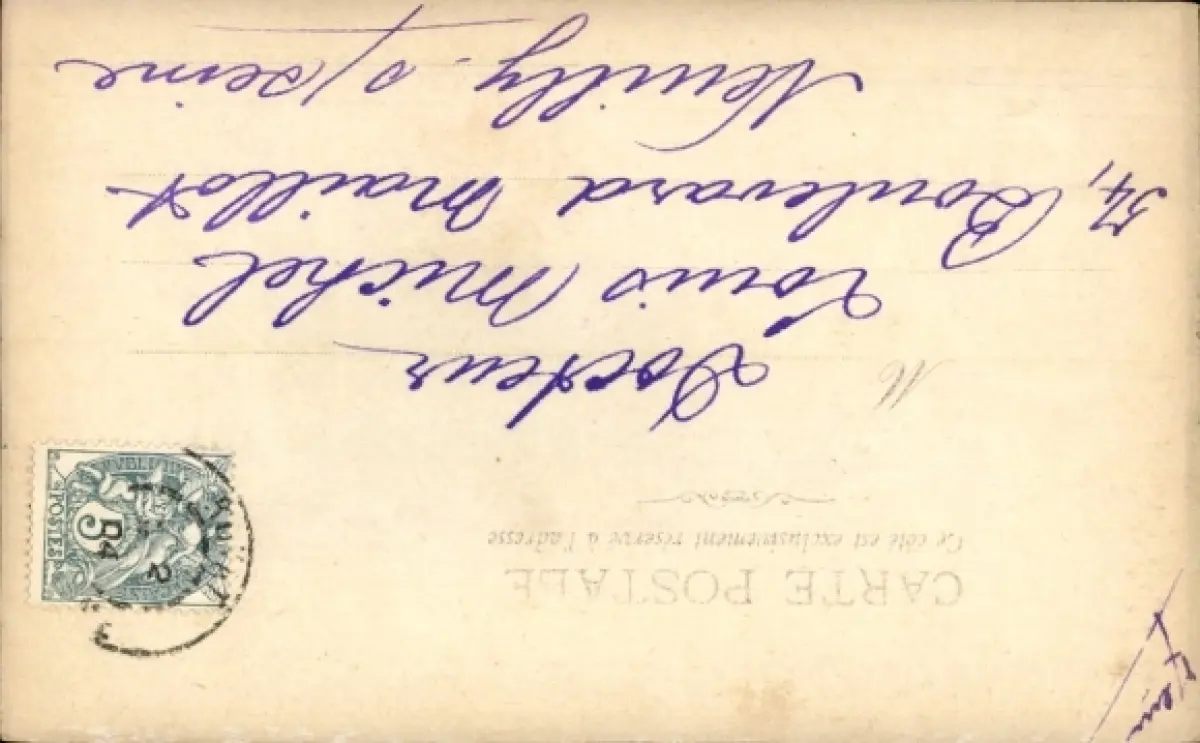 CARTE POSTALE
Ce côté est exclusivement réservé à l'adresse
M
Docteur
Louis Michel
54, Boulevard Maillot
Neuilly s/Seine
POSTES
5
2
04